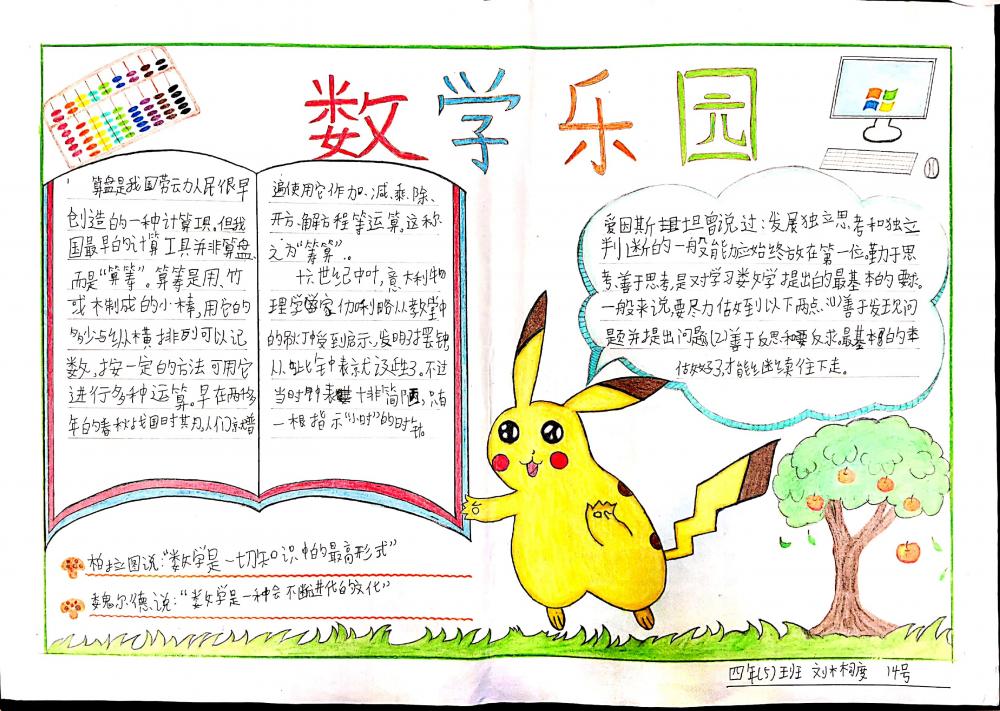 数学乐园
算盘是我国劳动人民很早
创造的一种计算工具。但我
国最早的计算工具并非算盘,
而是“算筹”。算筹是用竹
或木制成的小棒,用它的
多少与纵横排列可以记
数,按一定的方法可用它
进行多种运算。早在两千多
年的春秋战国时期人们就普
遍使用它作加、减、乘、除、
开方、解方程等运算。这称
之为“筹算”。
十六世纪中叶,意大利物
理学家伽利略从教堂中
的吊灯中受到启示,发明摆钟
从此钟表就诞生了。不过
当时钟表十非简陋,只有
一根指示“小时”的时针。
爱因斯坦曾说过:发展独立思考和独立
判断的一般能力应始终放在第一位。勤于思
考、善于思考,是对学习数学提出的最基本的要求。
一般来说,要尽力做到以下两点。(1)善于发现问
题并提出问题(2)善于反思和要反求。最基本的事
做好了,才能继续往下走。
柏拉图说:“数学是一切知识中的最高形式”
魏尔德说:“数学是一种会不断进化的文化”
四年(5)班 14号